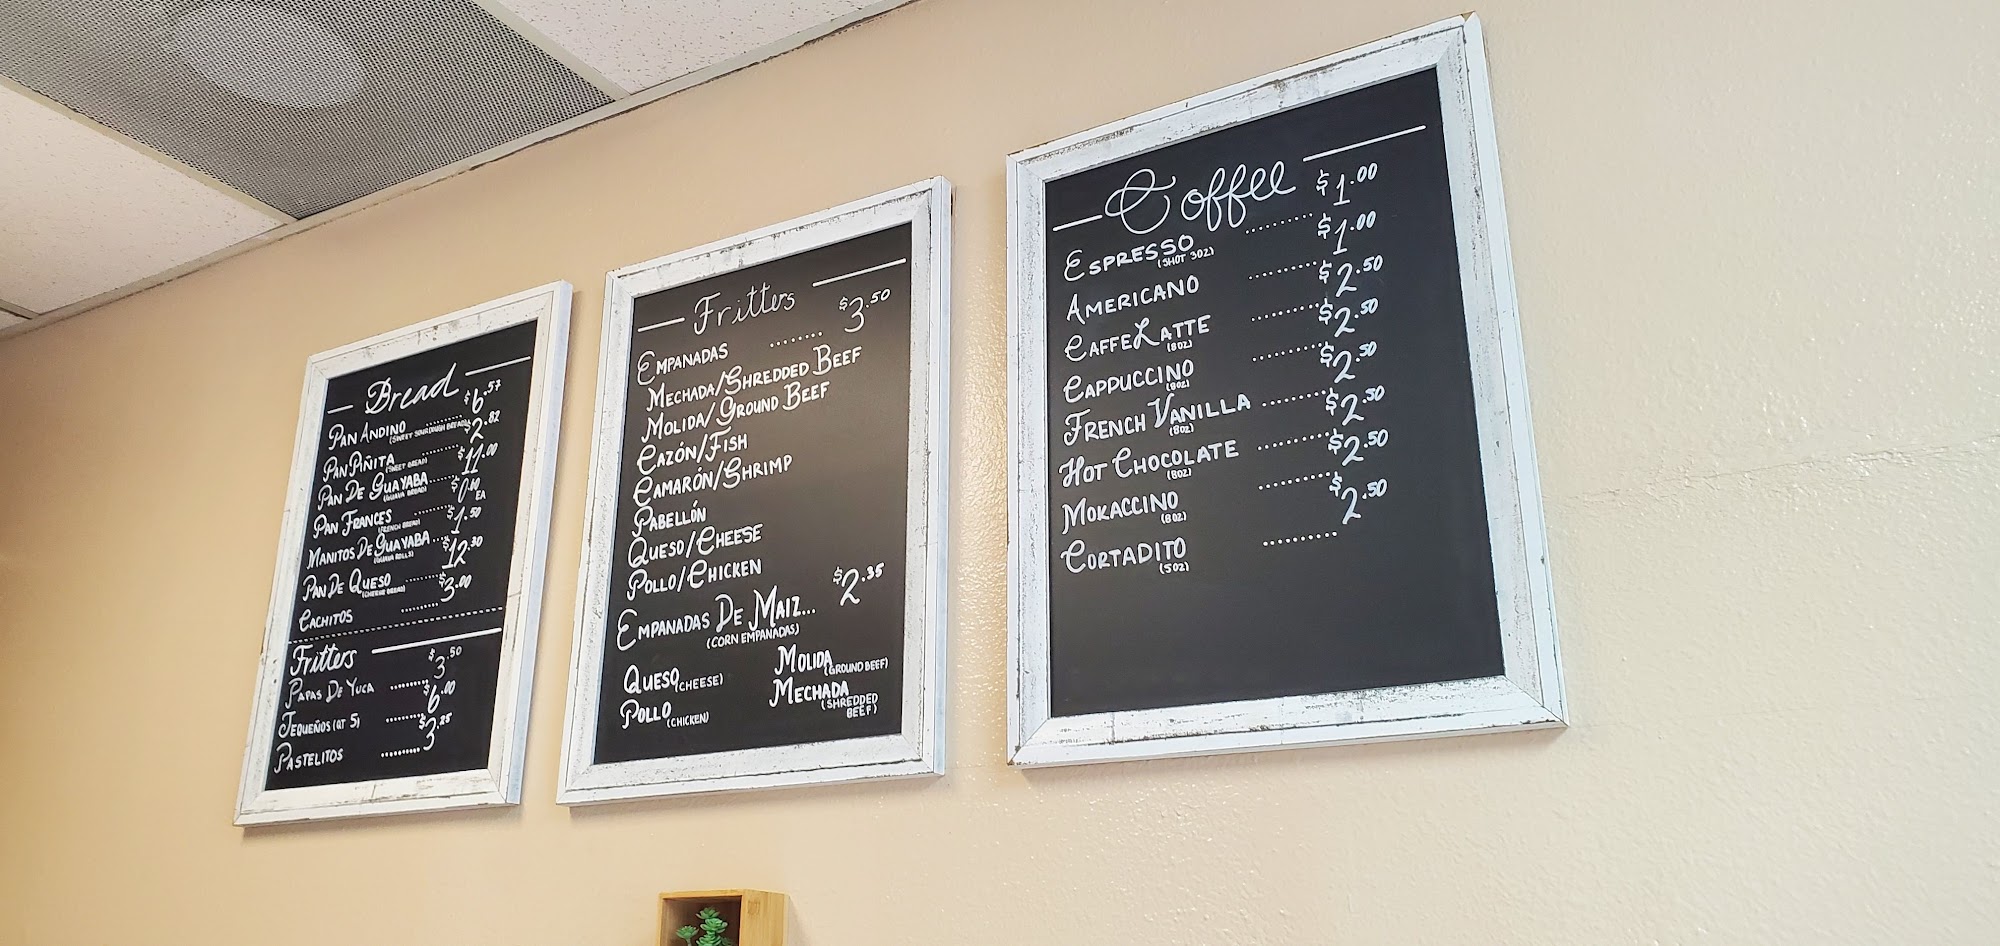 Bread
Pan Andino ........ $6.57
(Sweet Sourdough Bread)
Pan Piñita ........ $2.82
(Sweet Bread)
Pan De Guayaba ........ $11.00
(Guava Bread)
Pan Frances ........ $0.60 EA
(French Bread)
Manitos De Guayaba .... $1.50
(Guava Rolls)
Pan De Queso ........ $12.30
(Cheese Bread)
Cachitos ......... $3.00
Fritters
Papas De Yuca ......... $3.50
Tequeños (QT 5) ........ $6.00
Pastelitos ......... $3.25
Fritters
Empanadas ........ $3.50
Mechada/Shredded Beef
Molida/Ground Beef
Cazón/Fish
Camarón/Shrimp
Pabellón
Queso/Cheese
Pollo/Chicken
Empanadas De Maiz... $2.35
(Corn Empanadas)
Queso (Cheese)
Pollo (Chicken)
Molida (Ground Beef)
Mechada (Shredded
Beef)
Coffee
Espresso .......... $1.00
(Shot 3oz)
Americano .......... $1.00
Caffe Latte .......... $2.50
(8oz)
Cappuccino .......... $2.50
(8oz)
French Vanilla .......... $2.50
(8oz)
Hot Chocolate .......... $2.50
(8oz)
Mokaccino .......... $2.50
(8oz)
Cortadito .......... $2.50
(5oz)